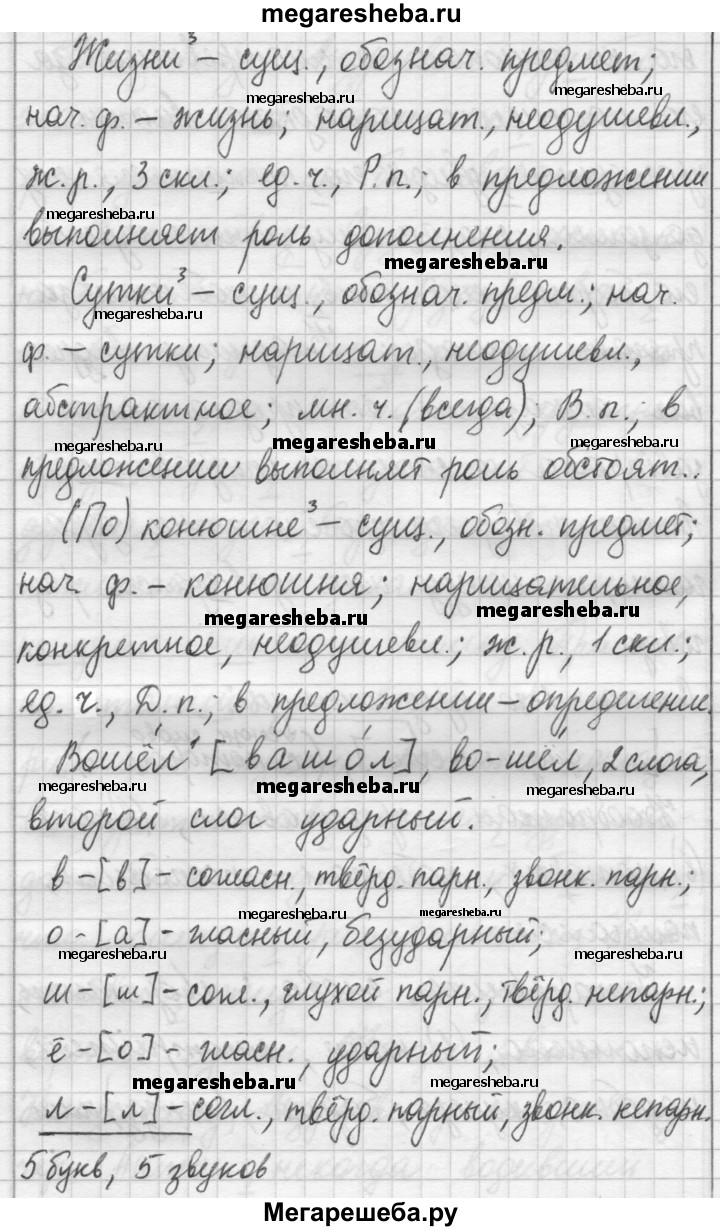 megaresheba.ru
Жизни³ – сущ., обознач. предмет;
megaresheba.ru megaresheba.ru
нач. ф. – жизнь; нарицат., неодушевл.,
ж. р., 3 скл.; ед. ч., Р. п.; в предложении
megaresheba.ru megaresheba.ru
выполняет роль дополнения.
megaresheba.ru
Сутки³ – сущ., обознач. предм.; нач.
megaresheba.ru
ф. – сутки; нарицат., неодушевл.,
абстрактное; мн. ч. (всегда); В. п.; в
megaresheba.ru megaresheba.ru megaresheba.ru
предложении выполняет роль обстоят..
(По) конюшне³ – сущ., обозн. предмет;
нач. ф. – конюшня; нарицательное,
megaresheba.ru megaresheba.ru
конкретное, неодушевл.; ж. р., 1 скл.;
ед. ч., Д. п.; в предложении – определение.
Вошёл¹ [вашо́л], во-шёл, 2 слога,
megaresheba.ru megaresheba.ru megaresheba.ru
второй слог ударный.
в – [в] – согласн., твёрд. парн., звонк. парн.;
megaresheba.ru megaresheba.ru
о – [а] – гласный, безударный;
megaresheba.ru megaresheba.ru
ш – [ш] – согл., глухой парн., твёрд. непарн.;
ё – [о] – гласн., ударный;
megaresheba.ru megaresheba.ru
л – [л] – согл., твёрд. парный, звонк. непарн.
5 букв, 5 звуков
Мегарешеба.ру